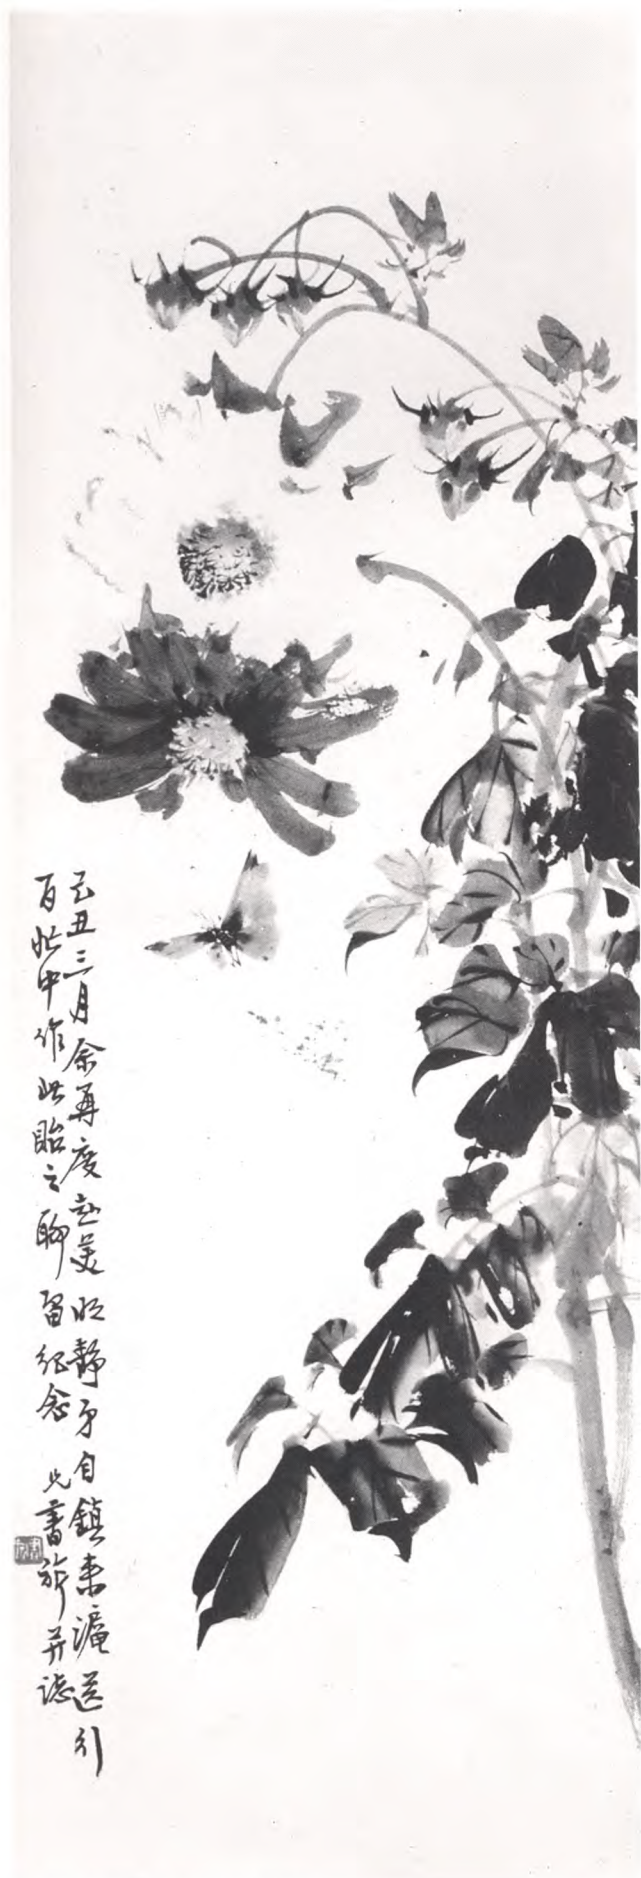 己丑三月余再度赴美明静弟自鎮来滬送行
百忙中作此貽之聊留紀念 兄書旂并誌